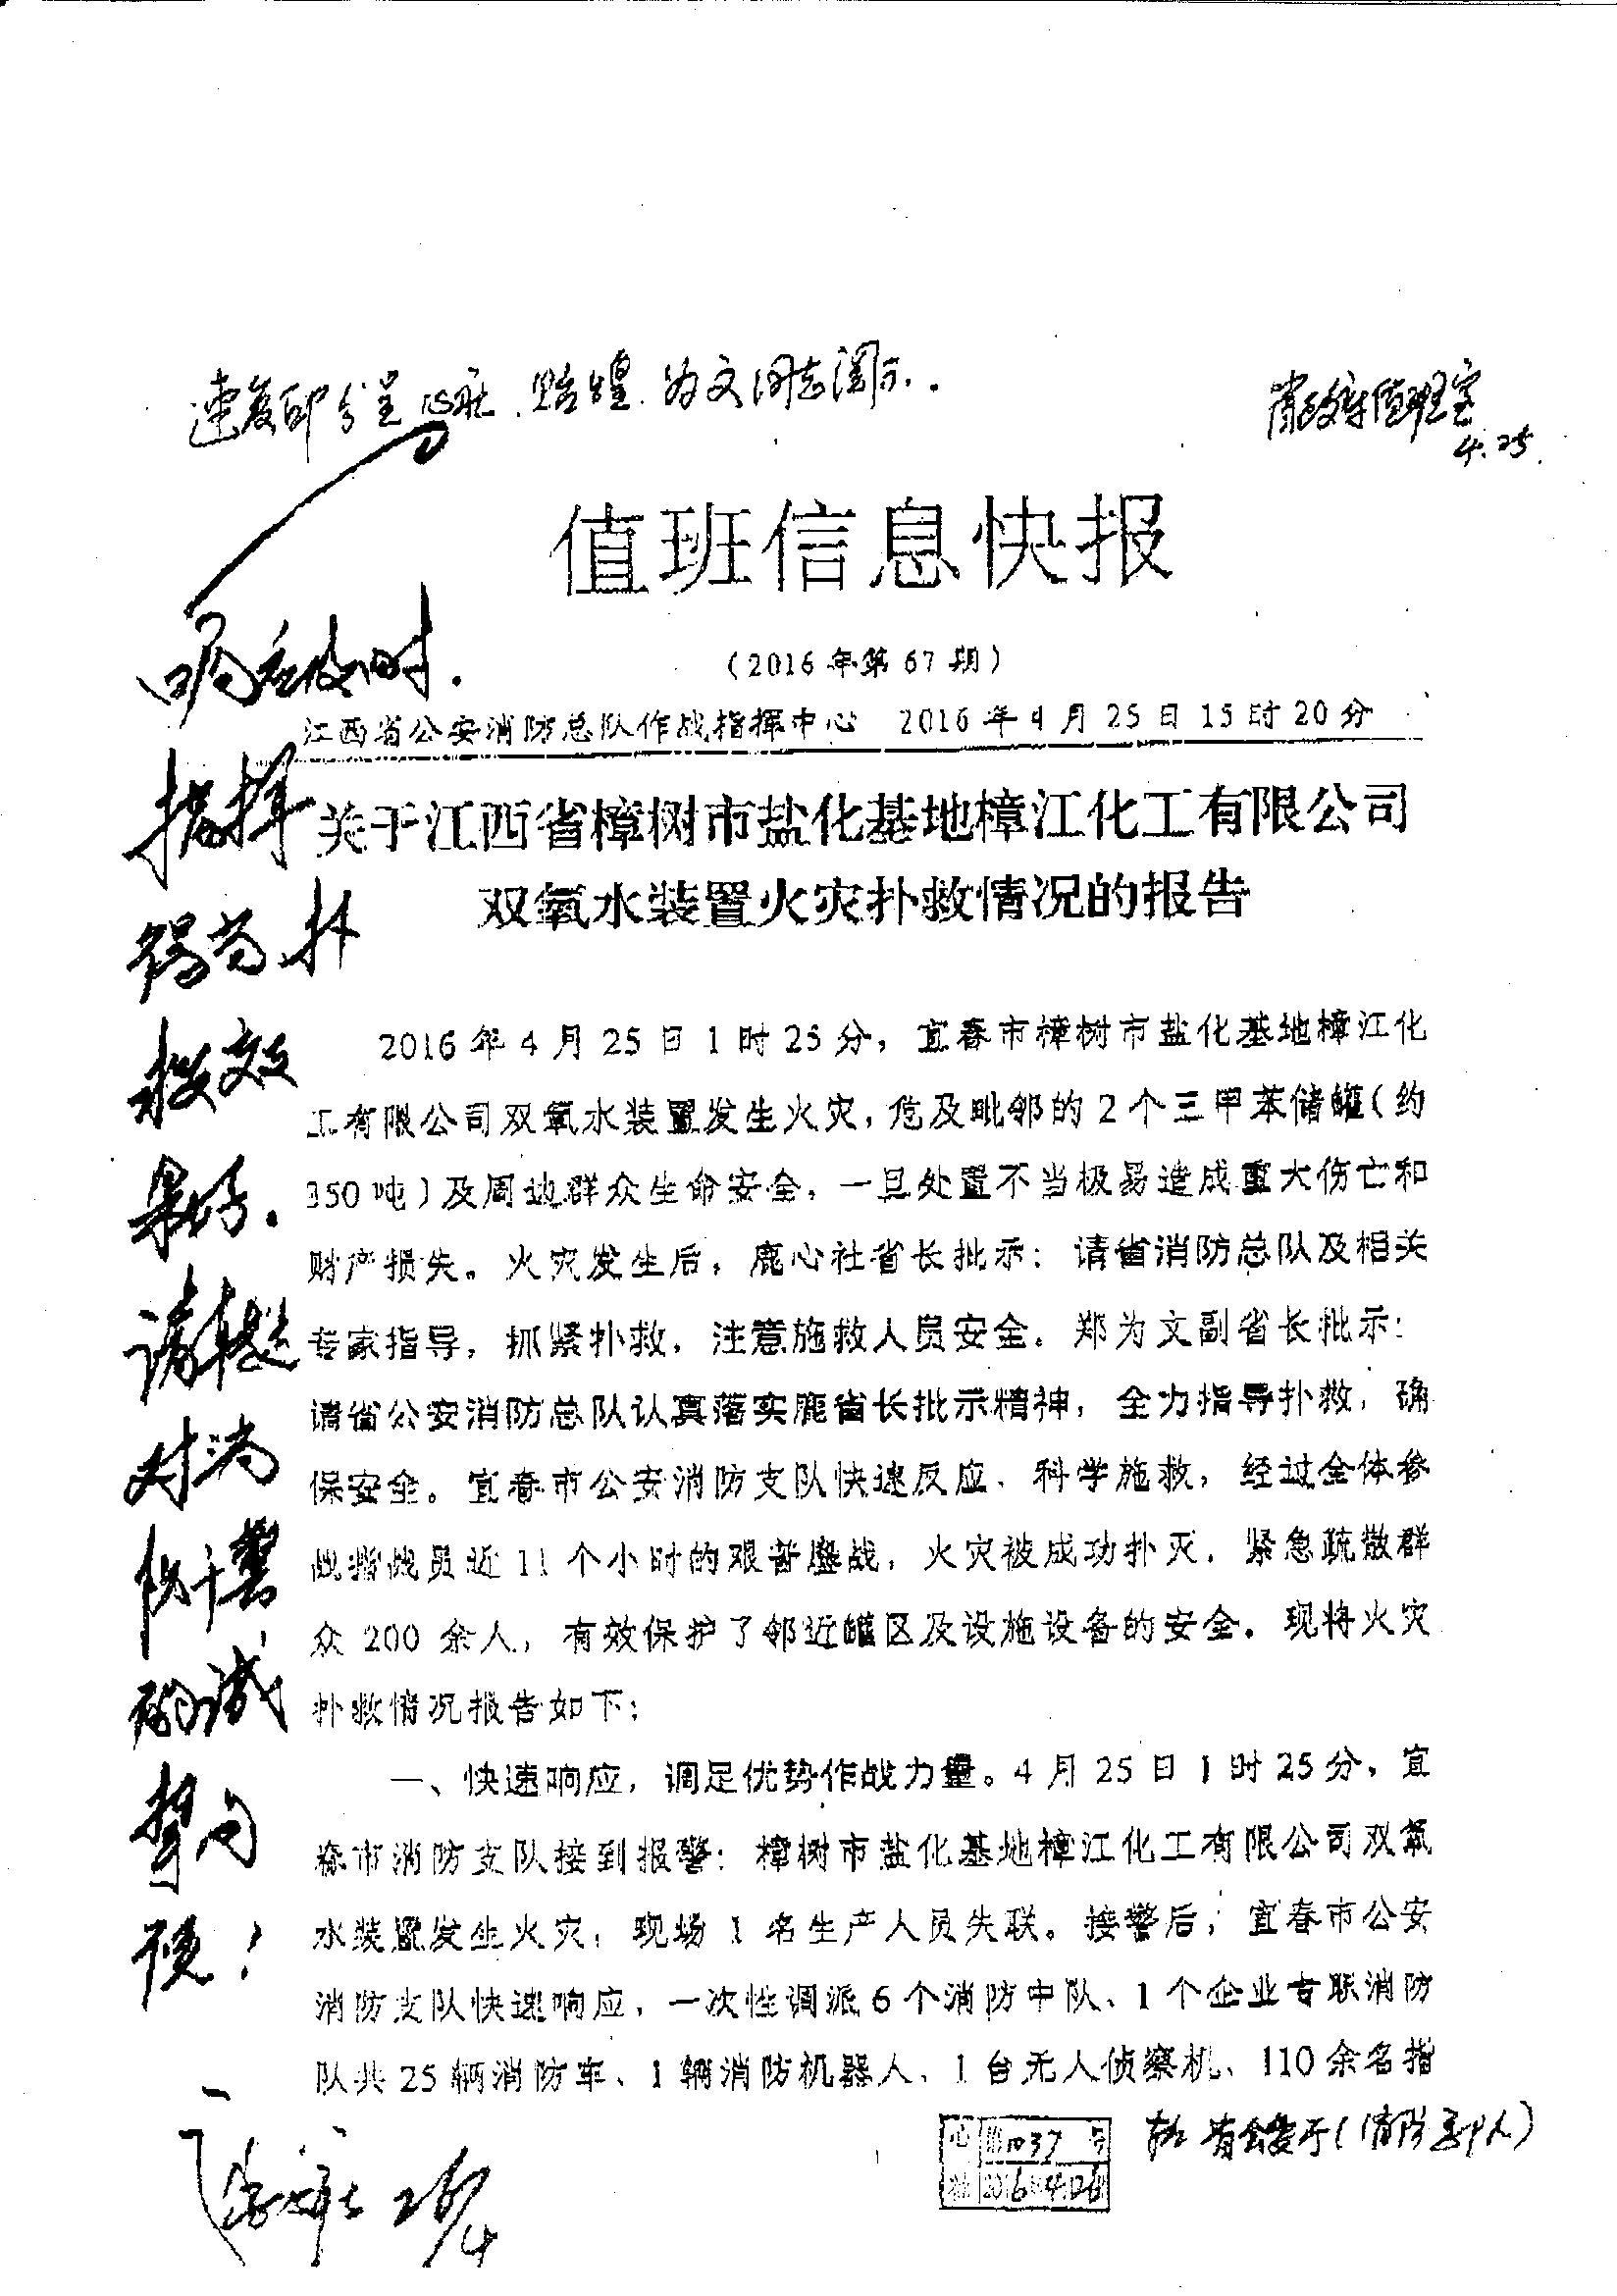 速复印分呈心社、贻煌、为文同志阅示.
省政府值班室
4.25.
值班信息快报
（2016年第67期）
江西省公安消防总队作战指挥中心 2016年4月25日15时20分
关于江西省樟树市盐化基地樟江化工有限公司
双氧水装置火灾扑救情况的报告
2016年4月25日1时25分，宜春市樟树市盐化基地樟江化
工有限公司双氧水装置发生火灾，危及毗邻的2个三甲苯储罐（约
350吨）及周边群众生命安全，一旦处置不当极易造成重大伤亡和
财产损失。火灾发生后，鹿心社省长批示：请省消防总队及相关
专家指导，抓紧扑救，注意施救人员安全。郑为文副省长批示：
请省公安消防总队认真落实鹿省长批示精神，全力指导扑救，确
保安全。宜春市公安消防支队快速反应、科学施救，经过全体参
战指战员近11个小时的艰苦鏖战，火灾被成功扑灭，紧急疏散群
众200余人，有效保护了邻近罐区及设施设备的安全。现将火灾
扑救情况报告如下：
一、快速响应，调足优势作战力量。4月25日1时25分，宜
春市消防支队接到报警：樟树市盐化基地樟江化工有限公司双氧
水装置发生火灾，现场1名生产人员失联。接警后，宜春市公安
消防支队快速响应，一次性调派6个消防中队、1个企业专职消防
队共25辆消防车、1辆消防机器人、1台无人侦察机、110余名指
响应及时.
指挥
得当.扑
救效
果好.
请转达
对消
防干警
的诚
挚问
候！
26/4
心 第1037号
社 2016.4.26
转 省公安厅（消防部队）